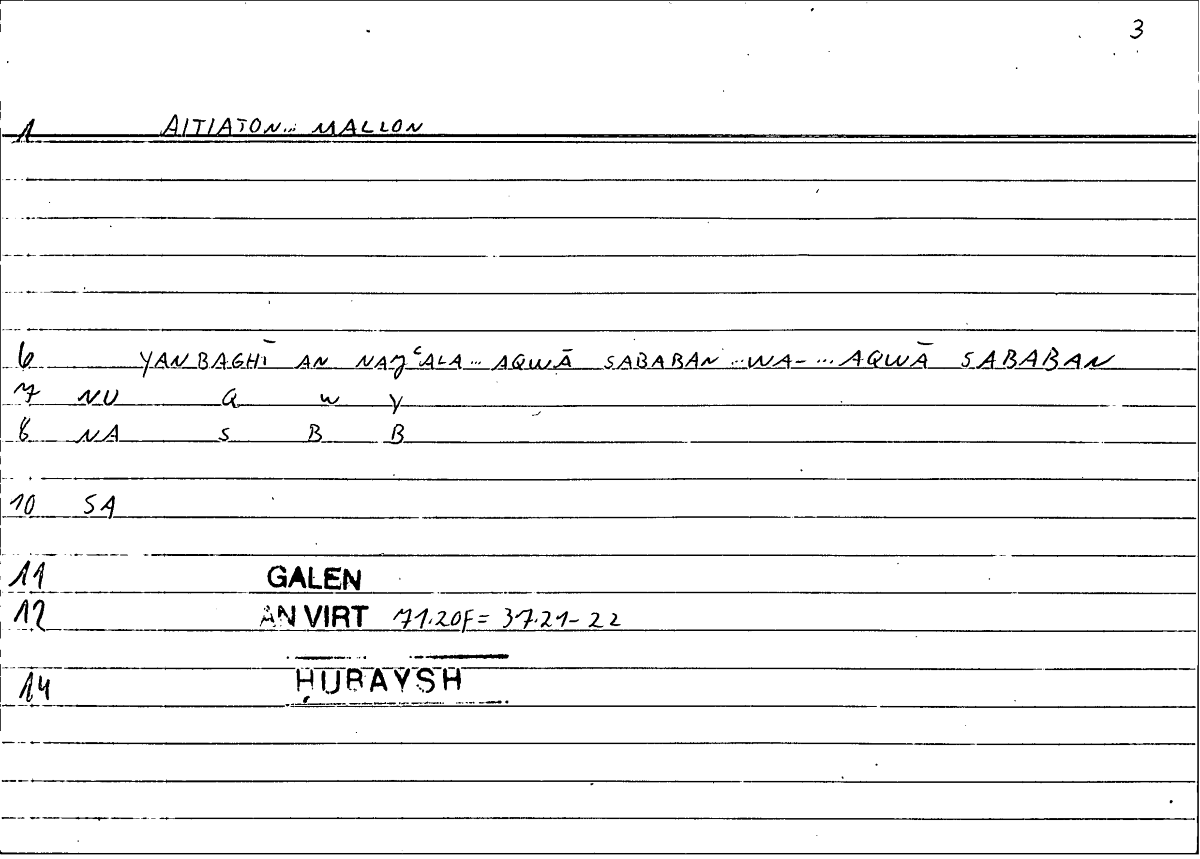 3
1 AITIATON... MALLON
6 YANBAGHĪ AN NAJʿALA ... AQWĀ SABABAN ... WA- ... AQWĀ SABABAN
7 NU Q W Y
8 NA S B B
10 SA
11 GALEN
12 AN VIRT 71.20F = 37.21-22
14 ḤUBAYSH